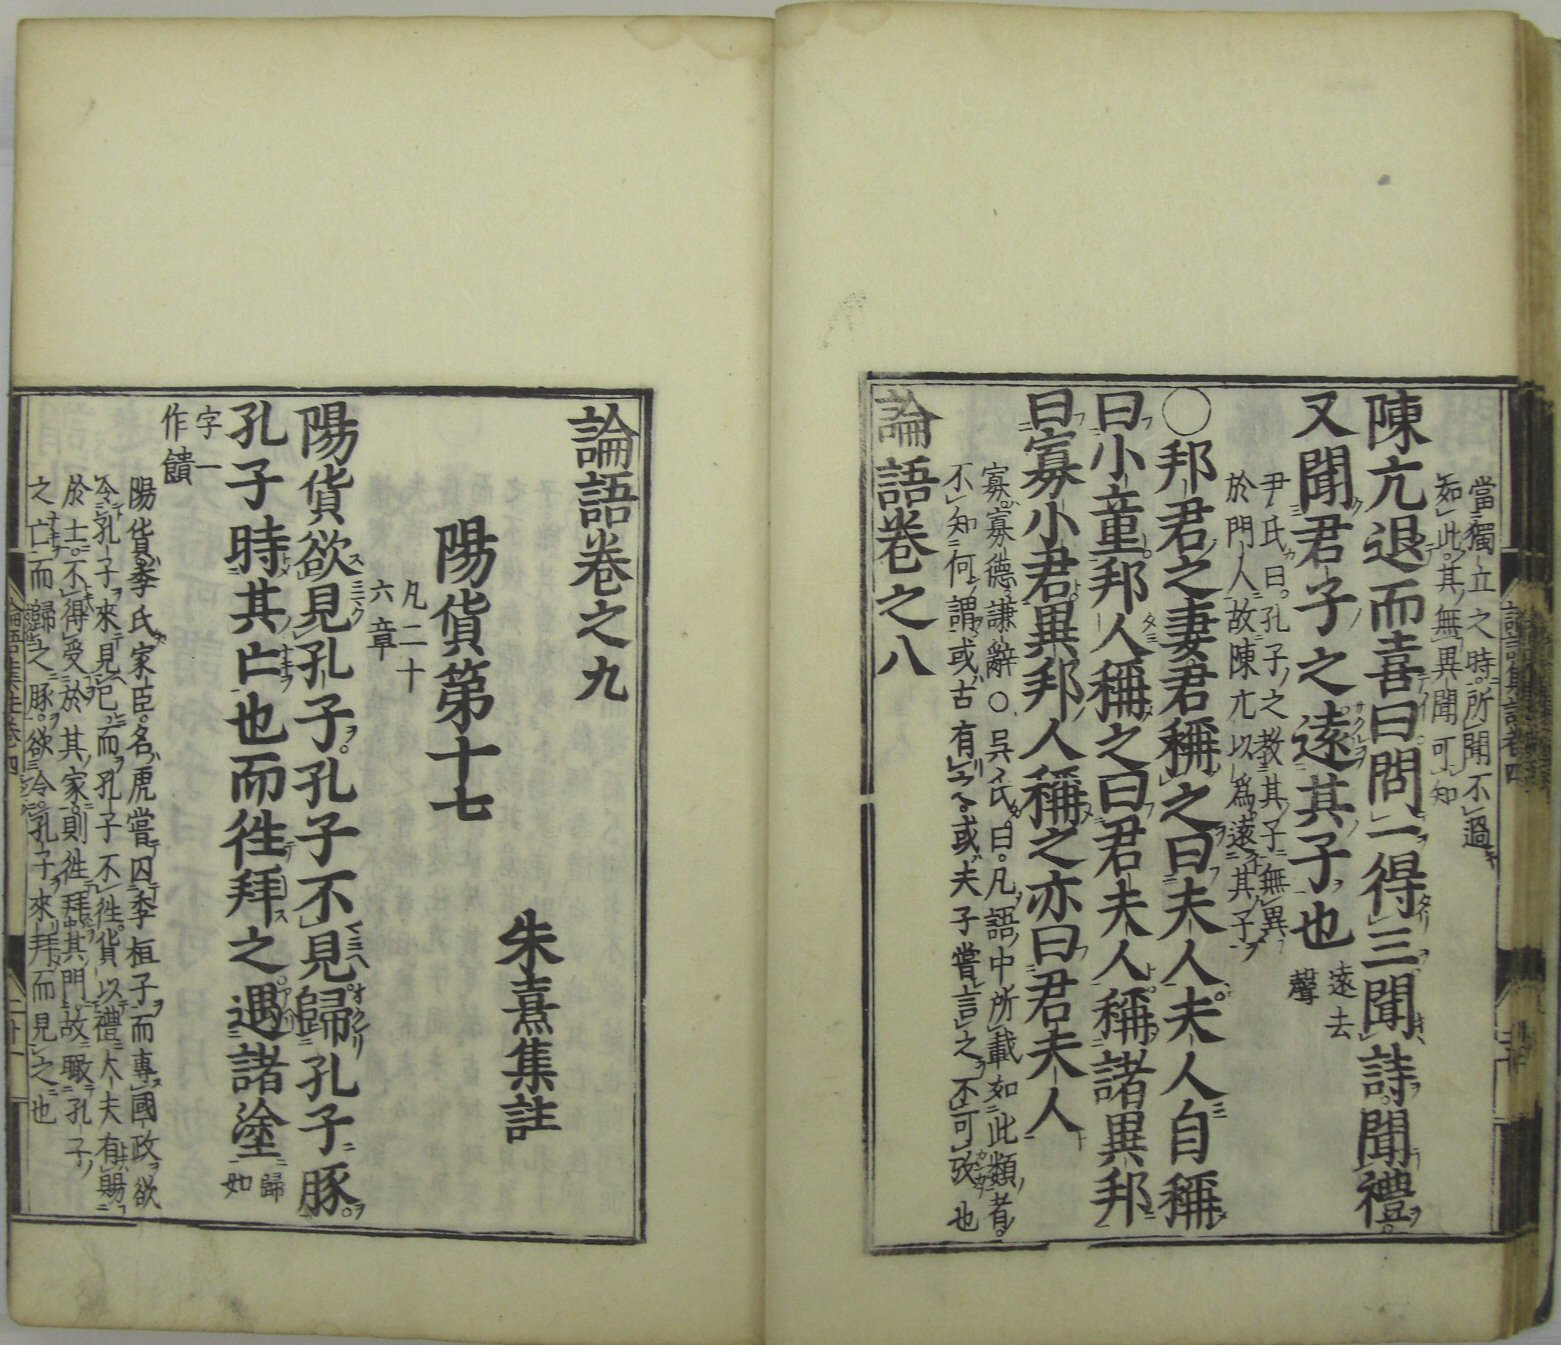 當獨立之時所聞不過
如此其無異聞可知
陳亢退而喜曰問一得三聞詩聞禮
又聞君子之遠其子也
遠去
聲
尹氏曰孔子之教其子無異
於門人故陳亢以爲遠其子
○邦君之妻君稱之曰夫人夫人自稱
曰小童邦人稱之曰君夫人稱諸異邦
曰寡小君異邦人稱之亦曰君夫人
寡寡德謙辭○呉氏曰凡語中所載如此類者
不知何謂或古有之或夫子嘗言之不可攷也
論語卷之八
論語卷之九
朱熹集註
陽貨第十七
凡二十
六章
陽貨欲見孔子孔子不見歸孔子豚
孔子時其亡也而徃拜之遇諸塗
歸
如
字一
作饋
陽貨季氏家臣名虎嘗囚季桓子而專國政欲
令孔子來見己而孔子不徃貨以禮大夫有賜
於士不得受於其家則徃拜其門故瞰孔子
之亡而歸之豚欲令孔子來拜而見之也